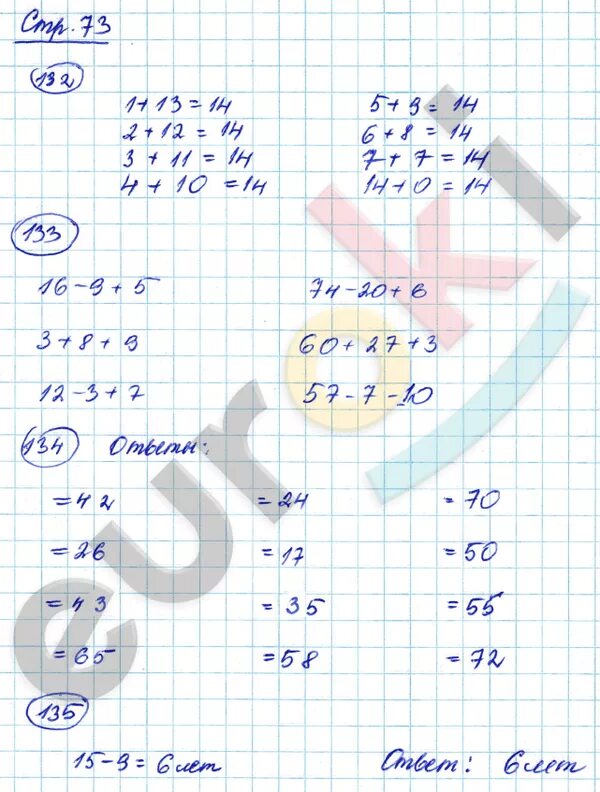 Стр. 73
132
1+13=14 5+9=14
2+12=14 6+8=14
3+11=14 7+7=14
4+10=14 14+0=14
133
16-9+5 74-20+6
3+8+9 60+27+3
12-3+7 57-7-10
134 Ответы:
=42 =24 =70
=26 =17 =50
=43 =35 =55
=65 =58 =72
135
15-9=6 лет Ответ: 6 лет
euroki